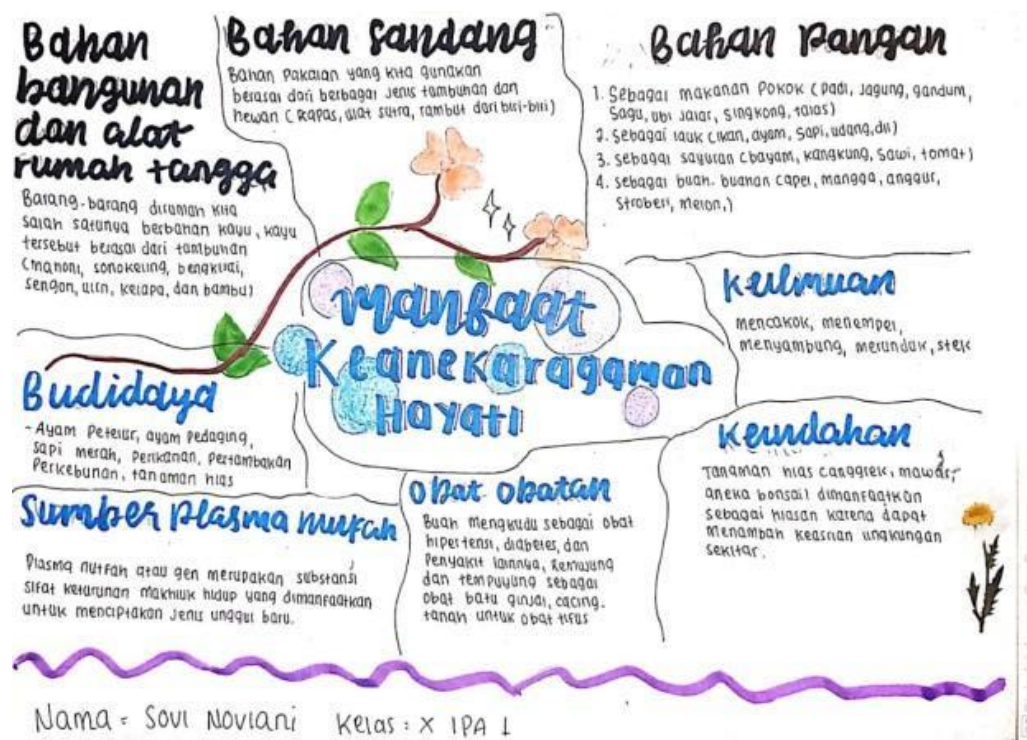 Bahan
bangunan
dan alat
rumah tangga
Barang-barang dirumah kita
salah satunya berbahan kayu, kayu
tersebut berasal dari tumbuhan
(mahoni, sonokeling, bengkirai,
sengon, ulin, kelapa, dan bambu)
Bahan Sandang
Bahan Pakaian yang kita gunakan
berasal dari berbagai jenis tumbuhan dan
hewan (kapas, ulat sutra, rambut dari biri-biri)
Bahan Pangan
1. Sebagai makanan Pokok (padi, jagung, gandum,
Sagu, ubi jalar, singkong, talas)
2. sebagai lauk (ikan, ayam, sapi, udang, dll)
3. sebagai sayuran (bayam, kangkung, sawi, tomat)
4. sebagai buah-buahan (apel, mangga, anggur,
stroberi, melon,)
Manfaat
Keanekaragaman
Hayati
Keilmuan
mencakok, menempel,
menyambung, merunduk, stek
Budidaya
- Ayam Petelur, ayam Pedaging,
sapi merah, Perikanan, Pertambakan
Perkebunan, tanaman hias
Keindahan
Tanaman hias (anggrek, mawar,
aneka bonsai) dimanfaatkan
sebagai hiasan karena dapat
Menambah keasrian lingkungan
sekitar.
Sumber Plasma nutfah
Plasma nutfah atau gen merupakan substansi
sifat keturunan makhluk hidup yang dimanfaatkan
untuk menciptakan jenis unggul baru.
Obat Obatan
Buah Mengkudu sebagai obat
hipertensi, diabetes, dan
Penyakit lainnya, Remujung
dan tempuyung sebagai
obat batu ginjal, cacing.
tanah untuk obat tifus
Nama = Sovi Noviani Kelas : X IPA 1